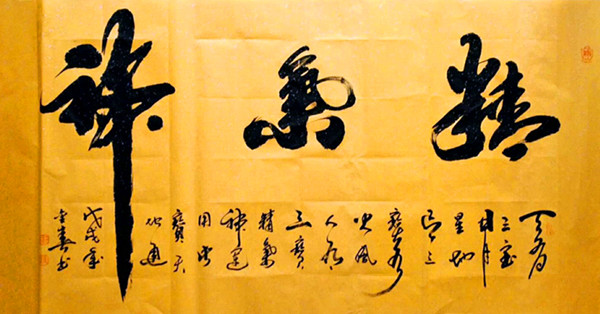 精氣神
天有
三宝
日月
星地
有三
寶水
火風
人有
三寶
精氣
神
用
寶天
地通
戊戌年
书